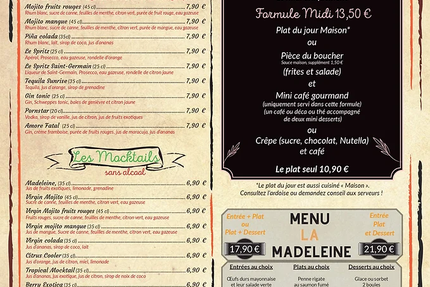 Mojito fruits rouges (45 cl) 7,90 €
Rhum blanc, sucre de canne, feuilles de menthe, citron vert, purée de fruit rouge, eau gazeuse
Mojito mangue (45 cl) 7,90 €
Rhum blanc, sucre de canne, feuilles de menthe, citron vert, purée de mangue, eau gazeuse
Piña colada (35cl) 7,90 €
Rhum blanc, lait, sirop de coco, jus d'ananas
Le Spritz (25 cl) 7,90 €
Apérol, Prosecco, eau gazeuse, rondelle d'orange
Le Spritz Saint-Germain (25 cl) 7,90 €
Liqueur de Saint-Germain, Prosecco, eau gazeuse, rondelle de citron jaune
Tequila Sunrise (35 cl) 7,90 €
Tequila, jus d'orange, sirop de grenadine
Gin tonic (25 cl) 7,90 €
Gin, Schweppes tonic, baies de genièvre et citron jaune
Pornstar (20 cl) 7,90 €
Vodka, sirop de vanille, jus de citron, jus de fruits exotiques
Amore Fatal (25 cl) 7,90 €
Gin, crème framboise, purée de fruits rouges, jus de
Les Mocktails
sans alcool
Madeleine, (35 cl) 6,90 €
Jus de fruits exotiques, limonade, grenadine
Virgin Mojito (45 cl) 6,90 €
Sucre de canne, feuilles de menthe, citron vert, eau gazeuse
Virgin Mojito fruits rouges (45 cl) 6,90 €
Fruits rouges, sucre de canne, feuilles de menthe, citron vert, eau gazeuse
Virgin mojito mangue (35 cl) 6,90 €
Mangue, sucre de canne, feuilles de menthe, citron vert, eau gazeuse
Virgin colada (35 cl) 6,90 €
Jus d'ananas, sirop de coco, lait
Citrus Cooler (35 cl) 6,90 €
Jus d'ananas, jus de citron, miel, limonade
Tropical Mocktail (35 cl) 6,90 €
Jus d'ananas, jus exotique, jus de citron, sirop de noix de coco
Berry Exotica (35 cl) 6,90 €
Formule Midi 13,50 €
Plat du jour Maison*
ou
Pièce du boucher
Sauce maison, supplément 1,50 €
(frites et salade)
et
Mini café gourmand
(uniquement servi dans cette formule)
(un café ou déca ou thé accompagné
de deux mini desserts)
ou
Crêpe (sucre, chocolat, Nutella)
et café
Le plat seul 10,90 €
*Le plat du jour est aussi cuisiné « Maison ».
Consultez l'ardoise ou demandez conseil aux serveurs !
Entrée + Plat
ou
Plat + Dessert
17,90 €
MENU
LA
MADELEINE
Entrée
Plat
et Dessert
21,90 €
Entrées au choix
Plats au choix
Desserts au choix
Œufs durs mayonnaise
et leur salade verte
Penne rigate
au saumon fumé
Glace ou sorbet
2 boules